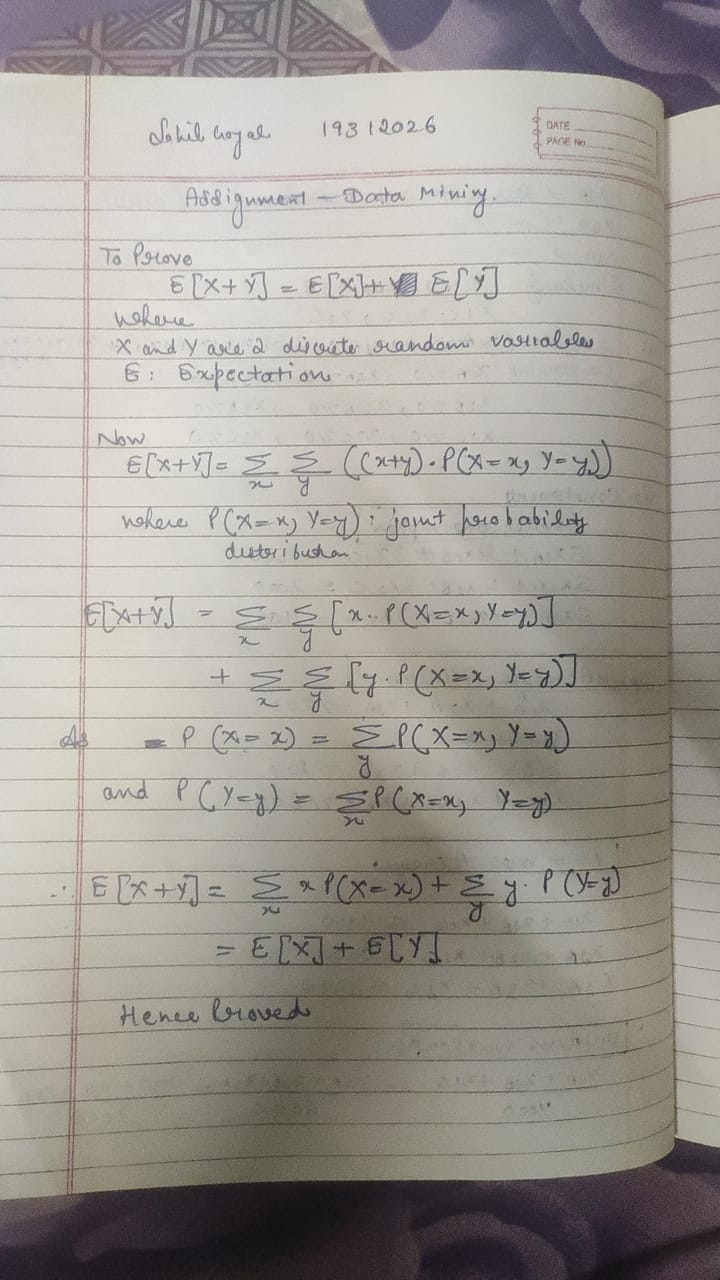 Sahil Goyal 19312026
DATE
PAGE NO.
Assignment - Data Mining.
To Prove
E[X+Y] = E[X]+ E[Y]
where
X and Y are 2 discrete random variables
E: Expectation
Now
E[X+Y] = Σ Σ ((x+y)·P(X=x, Y=y))
x y
where P(X=x, Y=y): joint probability
distribution
E[X+Y] = Σ Σ [x·P(X=x, Y=y)]
x y
+ Σ Σ [y·P(X=x, Y=y)]
x y
As P(X=x) = Σ P(X=x, Y=y)
y
and P(Y=y) = Σ P(X=x, Y=y)
x
∴ E[X+Y] = Σ x P(X=x) + Σ y·P(Y=y)
x y
= E[X] + E[Y]
Hence Proved